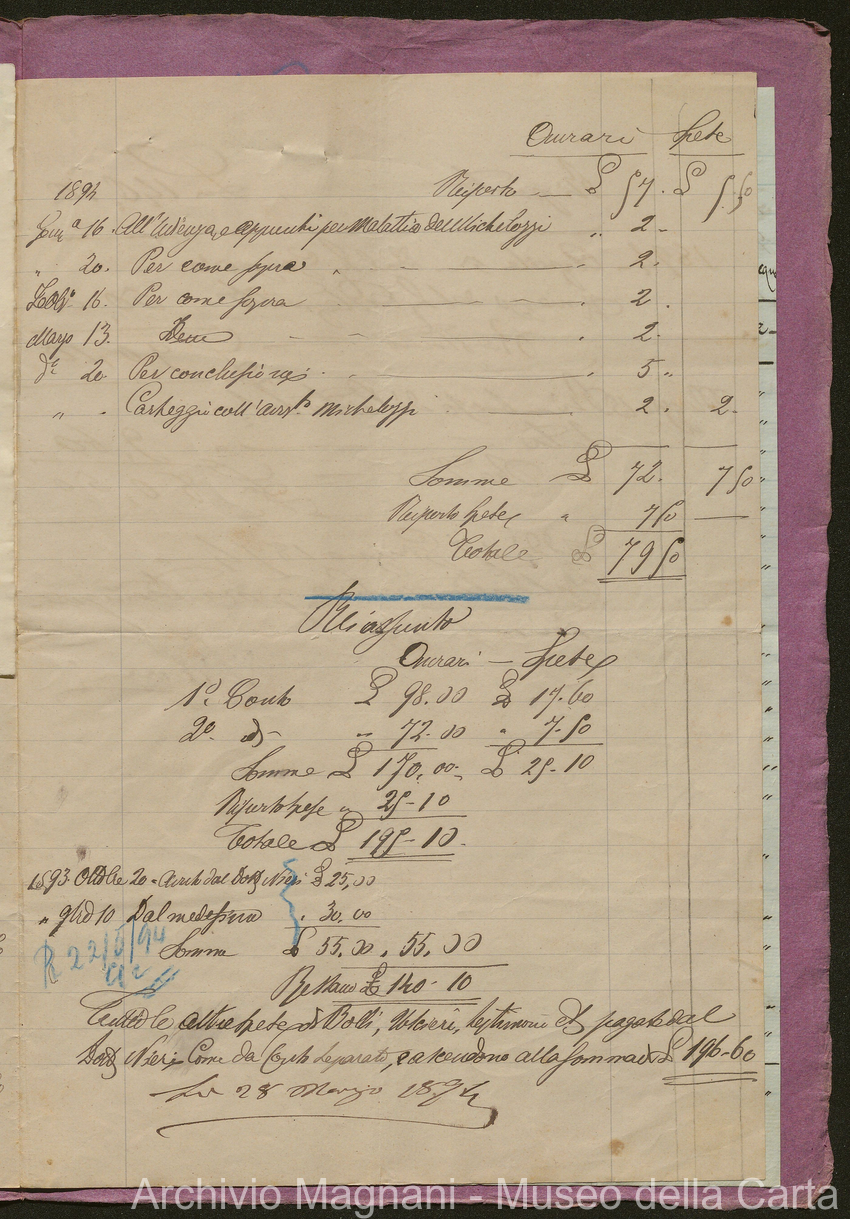 Onorari Spese
1894 Riporto £ 57. £ 5.50
Genn.º 16. All'Udienza, e appunti per Malattia del Michelozzi " 2 -
" 20. Per come sopra " 2.
Febb.º 16. Per come sopra " 2.
Marzo 13. Detto " 2.
d.º 20 Per conclusionali " 5 "
" " Carteggio coll'avv.to Michelozzi 2. 2.
Somme £ 72. 7 50
Riporto Spese " 7 50
Totale £ 79 50
Riassunto
Onorari - Spese
1º. Conto £ 98.00 £ 17.60
2º. d.º " 72.00 " 7.50
Somme £ 170.00 £ 25-10
Riporto Spese " 25-10
Totale £ 195-10.
1893 Ottobre 20 - Avuto dal Dott Nieri £ 25,00
" 9bre 10 Dal medesimo " 30.00
Somma £ 55.00 " 55,00
Restano £ 140-10
R 22/5/94
Tutte le altre spese di Bolli, Uscieri, testimoni &c pagate dal
Dott Nieri, Come da Conto Separato, ascendono alla Somma di £ 196-60
Li 28 Marzo 1894
Archivio Magnani - Museo della Carta